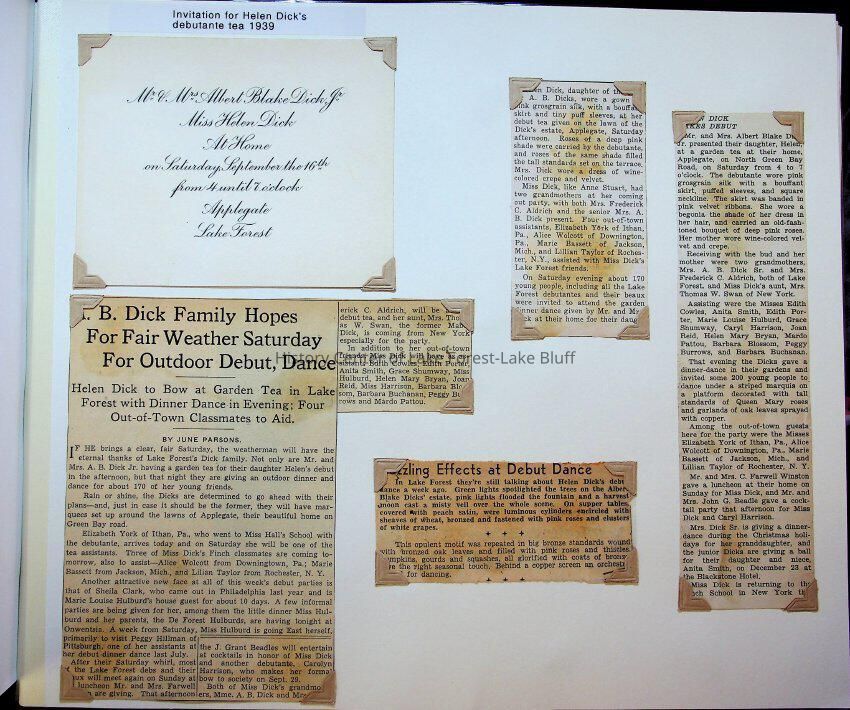 Invitation for Helen Dick's
debutante tea 1939
Mr. & Mrs. Albert Blake Dick, Jr.
Miss Helen Dick
At Home
on Saturday, September the 16th
from 4 until 7 o'clock
Applegate
Lake Forest
B. Dick Family Hopes
For Fair Weather Saturday
For Outdoor Debut, Dance
Helen Dick to Bow at Garden Tea in Lake
Forest with Dinner Dance in Evening; Four
Out-of-Town Classmates to Aid.
BY JUNE PARSONS.
IF HE brings a clear, fair Saturday, the weatherman will have the
eternal thanks of Lake Forest's Dick family. Not only are Mr. and
Mrs. A. B. Dick Jr. having a garden tea for their daughter Helen's debut
in the afternoon, but that night they are giving an outdoor dinner and
dance for about 170 of her young friends.
Rain or shine, the Dicks are determined to go ahead with their
plans—and, just in case it should be the former, they will have mar-
quees set up around the lawns of Applegate, their beautiful home on
Green Bay road.
Elizabeth York of Ithan, Pa., who went to Miss Hall's School with
the debutante, arrives today and on Saturday she will be one of the
tea assistants. Three of Miss Dick's Finch classmates are coming to-
morrow, also to assist—Alice Wolcott from Downingtown, Pa.; Marie
Bassett from Jackson, Mich., and Lilian Taylor from Rochester, N. Y.
Another attractive new face at all of this week's debut parties is
that of Sheila Clark, who came out in Philadelphia last year and is
Marie Louise Hulburd's house guest for about 10 days. A few informal
parties are being given for her, among them the little dinner Miss Hul-
burd and her parents, the De Forest Hulburds, are having tonight at
Onwentsia. A week from Saturday, Miss Hulburd is going East herself,
primarily to visit Peggy Hillman of
Pittsburgh, one of her assistants at
her debut dinner dance last July.
After their Saturday whirl, most
the Lake Forest debs and their
ux will meet again on Sunday at
luncheon Mr. and Mrs. Farwell
are giving. That afternoon
the J. Grant Beadles will entertain
at cocktails in honor of Miss Dick
and another debutante, Carolyn
Harrison, who makes her formal
bow to society on Sept. 29.
Both of Miss Dick's grandmo
ers, Mme. A. B. Dick and Mrs.
erick C. Aldrich, will be
debut tea, and her aunt, Mrs. Tho
as W. Swan, the former Mab
Dick, is coming from New York
especially for the party.
In addition to her out-of-town
guests Miss Dick will have as
Edith Cowles,
Anita Smith, Grace Shumway, Miss
Hulburd, Helen Mary Bryan, Joan
Reid, Miss Harrison, Barbara Blo
som, Barbara Buchanan, Peggy Bu
rows and Mardo Pattou.
en Dick, daughter of th
A. B. Dicks, wore a gown
k grosgrain silk, with a bouffa
skirt and tiny puff sleeves, at her
debut tea given on the lawn of the
Dick's estate, Applegate, Saturday
afternoon. Roses of a deep pink
shade were carried by the debutante,
and roses of the same shade filled
the tall standards set on the terrace.
Mrs. Dick wore a dress of wine-
colored crepe and velvet.
Miss Dick, like Anne Stuart, had
two grandmothers at her coming
out party, with both Mrs. Frederick
C. Aldrich and the senior Mrs. A.
B. Dick present. Four out-of-town
assistants, Elizabeth York of Ithan,
Pa., Alice Wolcott of Downington,
Pa., Marie Bassett of Jackson,
Mich., and Lillian Taylor of Roches-
ter, N.Y., assisted with Miss Dick's
Lake Forest friends.
On Saturday evening about 170
young people, including all the Lake
Forest debutantes and their beaux
were invited to attend the garden
dinner dance given by Mr. and Mr
ck at their home for their daug
zzling Effects at Debut Dance
In Lake Forest they're still talking about Helen Dick's debt
dance a week ago. Green lights spotlighted the trees on the Alber
Blake Dicks' estate, pink lights flooded the fountain and a harvest
moon cast a misty veil over the whole scene. On supper tables,
covered with peach satin, were luminous cylinders encircled with
sheaves of wheat, bronzed and fastened with pink roses and clusters
of white grapes.
This opulent motif was repeated in big bronze standards wound
with bronzed oak leaves and filled with pink roses and thistles
umpkins, gourds and squashes, all glorified with coats of bronz
e the right seasonal touch. Behind a copper screen an orchest
for dancing.
N DICK
KES DEBUT
Mr. and Mrs. Albert Blake D
Jr. presented their daughter, Helen,
at a garden tea at their home,
Applegate, on North Green Bay
Road, on Saturday from 4 to 7
o'clock. The debutante wore pink
grosgrain silk with a bouffant
skirt, puffed sleeves, and square
neckline. The skirt was banded in
pink velvet ribbons. She wore a
begonia the shade of her dress in
her hair, and carried an old-fash-
ioned bouquet of deep pink roses.
Her mother wore wine-colored vel-
vet and crepe.
Receiving with the bud and her
mother were two grandmothers,
Mrs. A. B. Dick Sr. and Mrs.
Frederick C. Aldrich, both of Lake
Forest, and Miss Dick's aunt, Mrs.
Thomas W. Swan of New York.
Assisting were the Misses Edith
Cowles, Anita Smith, Edith Por-
ter, Marie Louise Hulburd, Grace
Shumway, Caryl Harrison, Joan
Reid, Helen Mary Bryan, Mardo
Pattou, Barbara Blossom, Peggy
Burrows, and Barbara Buchanan.
That evening the Dicks gave a
dinner-dance in their gardens and
invited some 200 young people to
dance under a striped marquis on
a platform decorated with tall
standards of Queen Mary roses
and garlands of oak leaves sprayed
with copper.
Among the out-of-town guests
here for the party were the Misses
Elizabeth York of Ithan, Pa., Alice
Wolcott of Downington, Pa., Marie
Bassett of Jackson, Mich., and
Lillian Taylor of Rochester, N. Y.
Mr. and Mrs. C. Farwell Winston
gave a luncheon at their home on
Sunday for Miss Dick, and Mr. and
Mrs. John G. Beadle gave a cock-
tail party that afternoon for Miss
Dick and Caryl Harrison.
Mrs. Dick Sr. is giving a dinner-
dance during the Christmas holi-
days for her granddaughter, and
the junior Dicks are giving a ball
for their daughter and niece,
Anita Smith, on December 23 at
the Blackstone Hotel.
Miss Dick is returning to the
nch School in New York th
History Center of Lake Forest-Lake Bluff